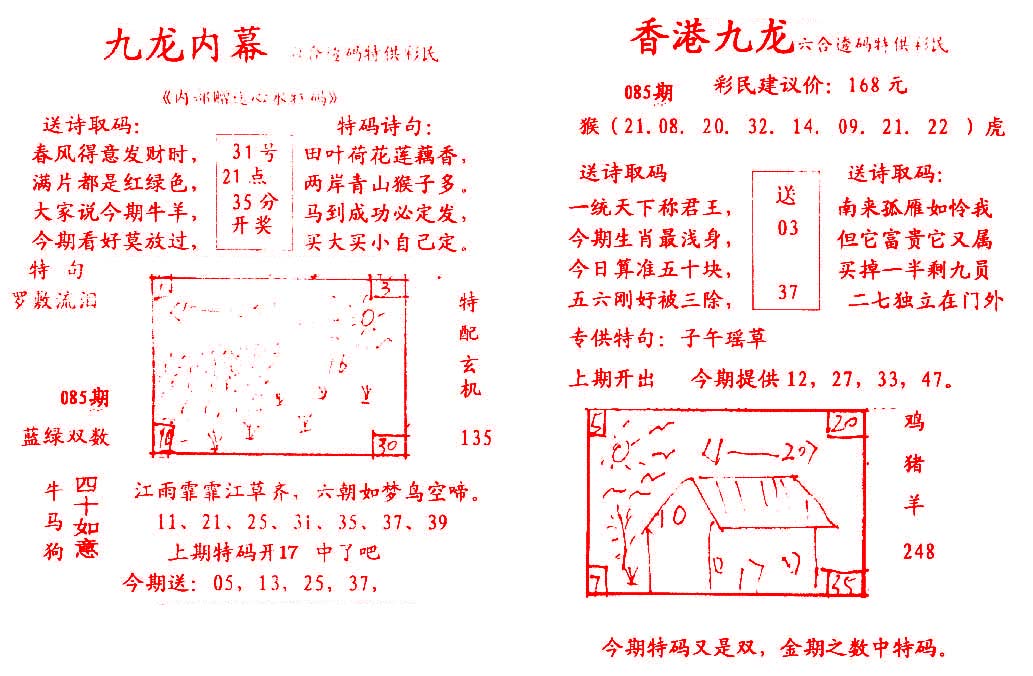 九龙内幕 六合透码特供彩民
《内部赠送心水特码》
送诗取码：
春风得意发财时，
满片都是红绿色，
大家说今期牛羊，
今期看好莫放过，
31号
21点
35分
开奖
特码诗句：
田叶荷花莲藕香，
两岸青山猴子多。
马到成功必定发，
买大买小自己定。
特 句
罗敷流泪
085期
蓝绿双数
1
3
16
10
30
特
配
玄
机
135
牛
马
狗
四十如意
江雨霏霏江草齐，六朝如梦鸟空啼。
11、21、25、31、35、37、39
上期特码开17 中了吧
今期送：05，13，25，37，
香港九龙 六合透码特供彩民
085期 彩民建议价：168元
猴（21.08. 20. 32. 14. 09. 21. 22 ）虎
送诗取码
一统天下称君王，
今期生肖最浅身，
今日算准五十块，
五六刚好被三除，
送
03
37
送诗取码：
南来孤雁如怜我
但它富贵它又属
买掉一半剩九员
二七独立在门外
专供特句：子午瑶草
上期开出 今期提供12，27，33，47。
5
20
10
17
7
35
鸡
猪
羊
248
今期特码又是双，金期之数中特码。